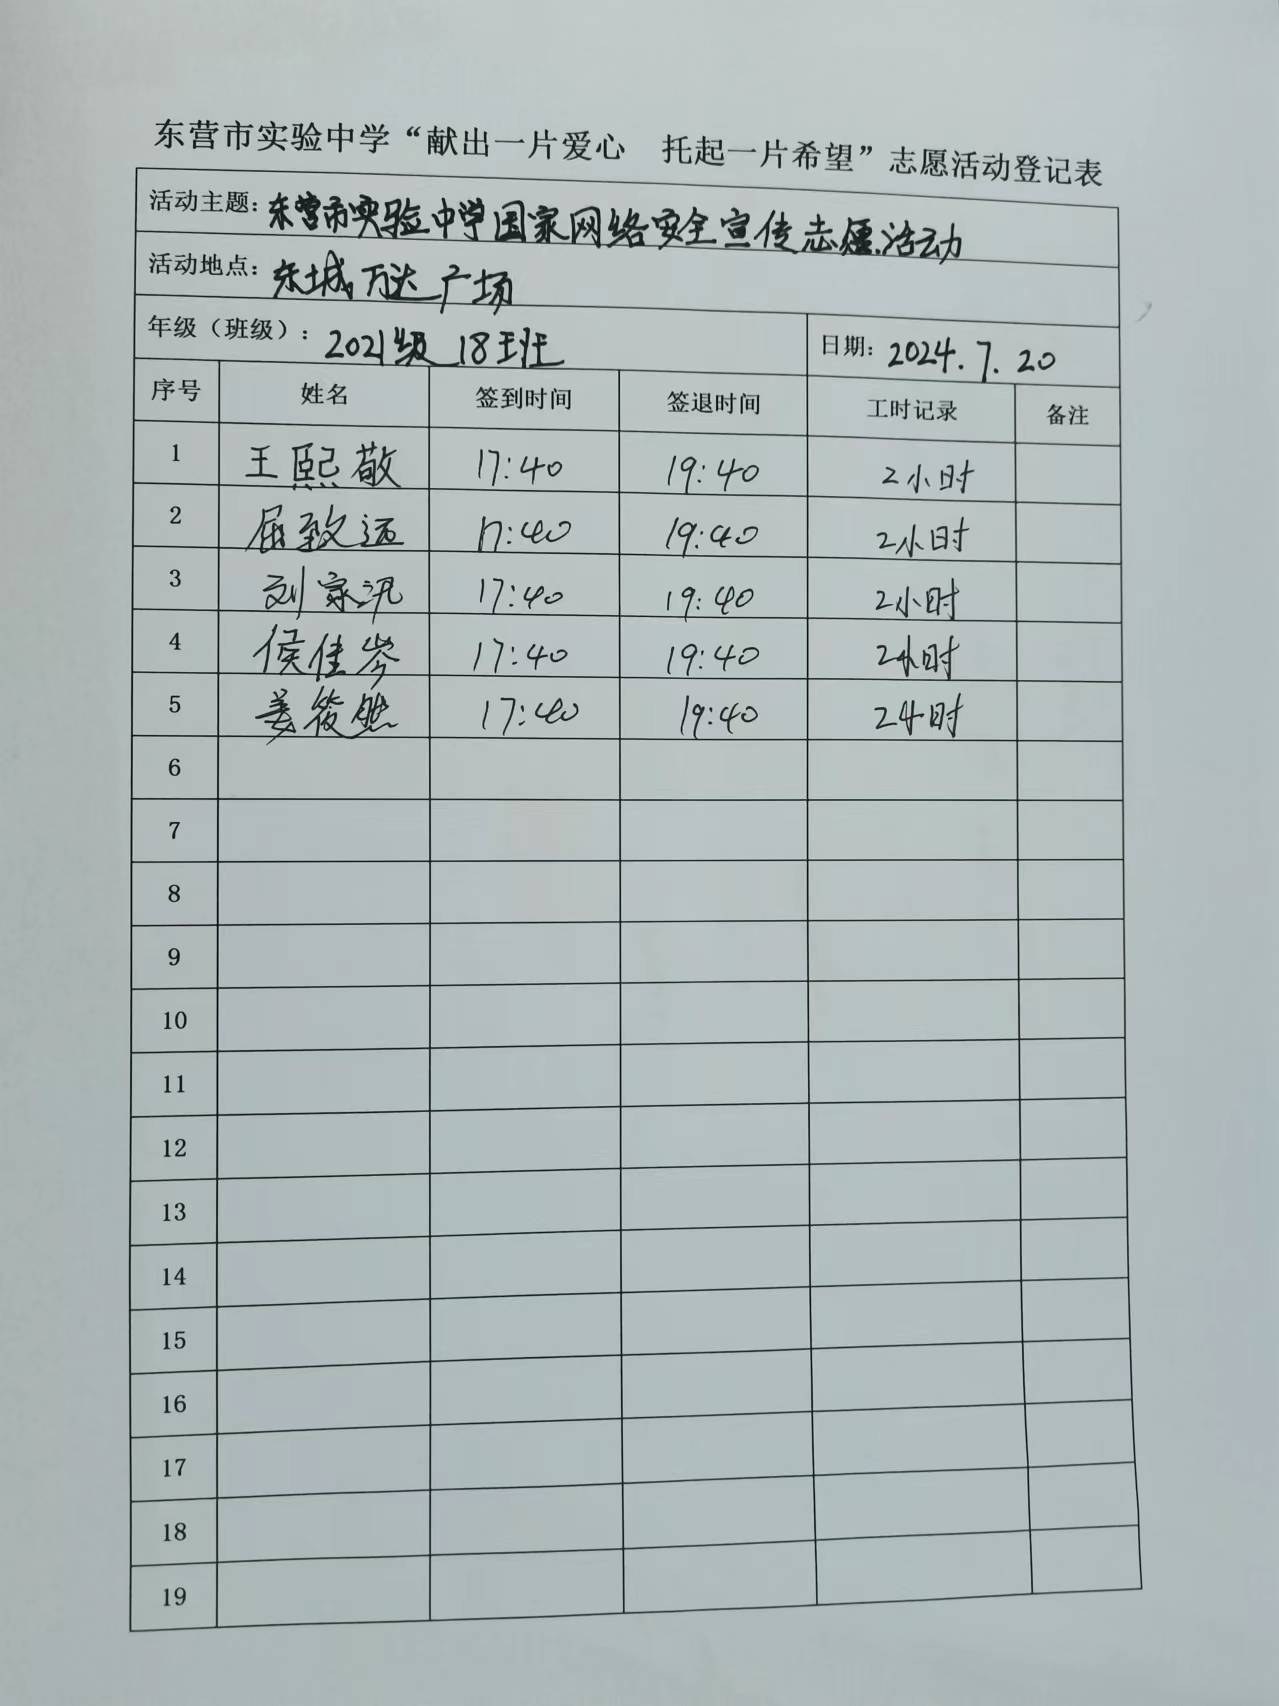 东营市实验中学“献出一片爱心 托起一片希望”志愿活动登记表
活动主题：东营市实验中学国家网络安全宣传志愿活动
活动地点：东城万达广场
年级（班级）：2021级18班 日期：2024.7.20
序号 姓名 签到时间 签退时间 工时记录 备注
1 王熙敬 17:40 19:40 2小时
2 屈致远 17:40 19:40 2小时
3 刘家汛 17:40 19:40 2小时
4 侯佳岑 17:40 19:40 2小时
5 姜筱然 17:40 19:40 2小时
6
7
8
9
10
11
12
13
14
15
16
17
18
19